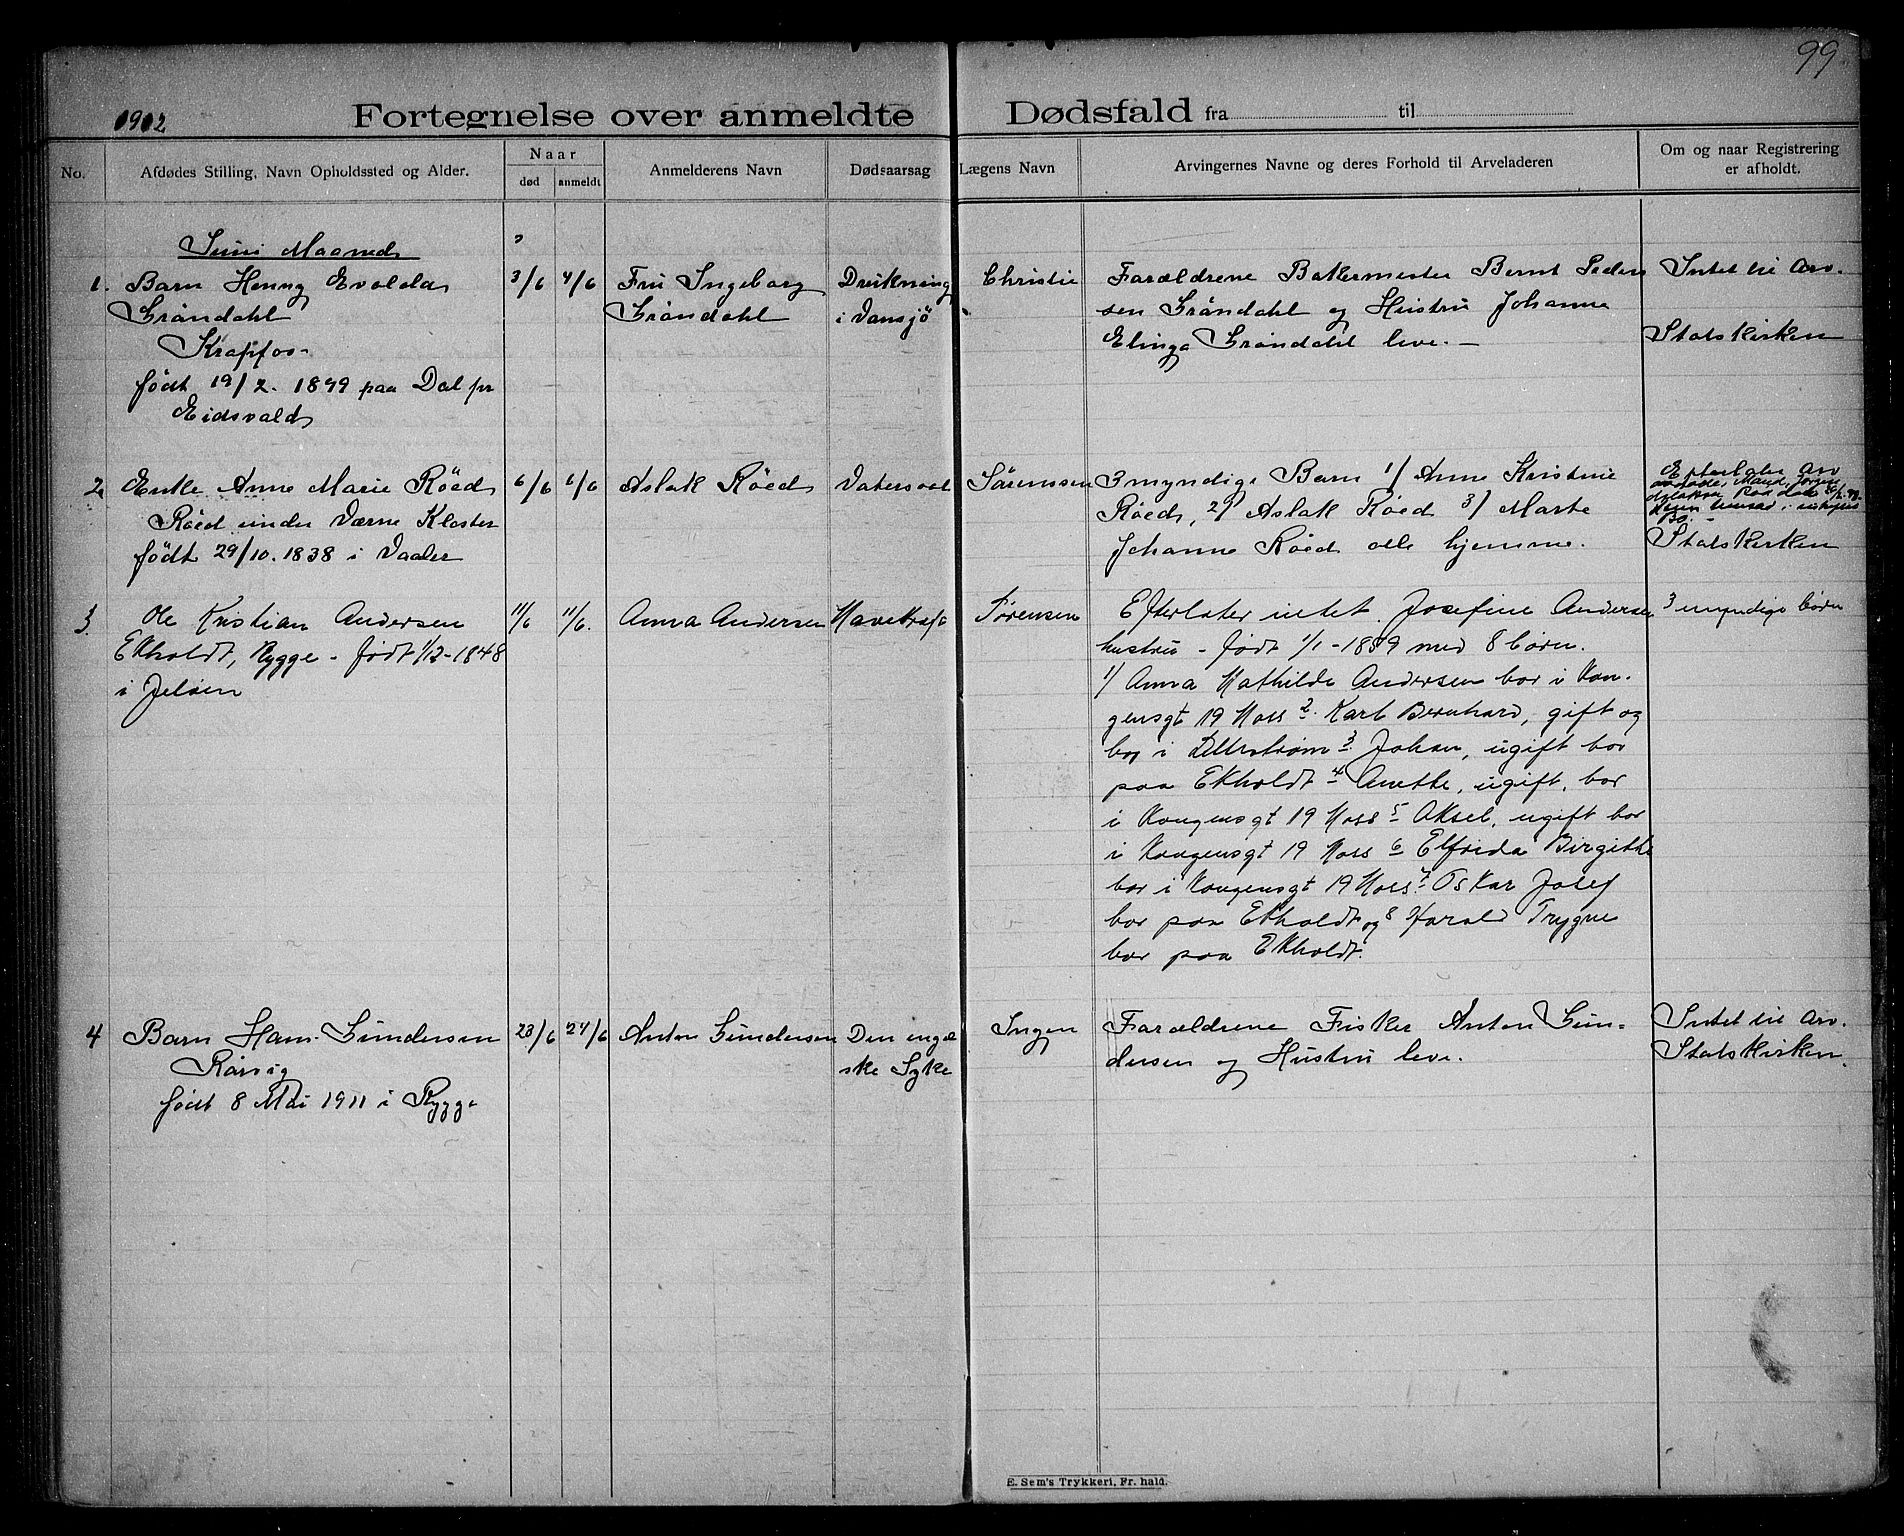 99
1912 Fortegnelse over anmeldte Dødsfald fra til
No. Afdødes Stilling, Navn Opholdssted og Alder. Naar død anmeldt Anmelderens Navn Dødsaarsag Lægens Navn Arvingernes Navne og deres Forhold til Arveladeren Om og naar Registrering er afholdt.
Juni Maaned
1. Barn Henny Evolda 3/6 4/6 Fru Ingeborg Drukning Christie Forældrene Bakermester Bernt Peder Intet til Arv.
Gröndahl Gröndahl i Vansjö sen Gröndahl og Hustru Johanne
Krapfos Elinga Gröndahl leve. Statskirken
født 19/2. 1899 paa Dal pr
Eidsvold
2 Enke Anne Marie Röed 6/6 6/6 Aslak Röed Vatersot Sörenssen 3 myndige Barn 1/ Anne Kristine Efterlater Arv
Röed under Værne Kloster Röed, 2/ Aslak Röed 3/ Marte
født 29/10. 1838 i Vaaler Johanne Röed alle hjemme. Bo. Statskirken
3. Ole Kristian Andersen 11/6 11/6. Anna Andersen Mavekræft Sørensen Efterlater intet. Josefine Andersen 3 umyndige børn
Ekholdt, Rygge - født 1/12-1848 hustru - født 1/1-1859 med 8 børn.
i Jeløen 1/ Anna Mathilde Andersen bor i Kon-
gensgt 19 Moss 2. Karl Bernhard, gift og
bor i 3 Johan, ugift bor
paa Ekholdt 4 Anette, ugift, bor
i Kongensgt 19 Moss 5 Aksel, ugift bor
i Kongensgt 19 Moss 6 Elfrida Birgitte
bor i Kongensgt 19 Moss 7. Oskar Josef
bor paa Ekholdt og 8 Harald Trygve
bor paa Ekholdt.
4 Barn Hans Gundersen 23/6 24/6 Anton Gundersen Den engel Ingen Forældrene Fisker Anton Gun- Intet til Arv.
Rörvig ske Syke dersen og Hustru leve. Statskirken
født 8 Mai 1911 i Rygge
E. Sem's Trykkeri, Fr.hald.